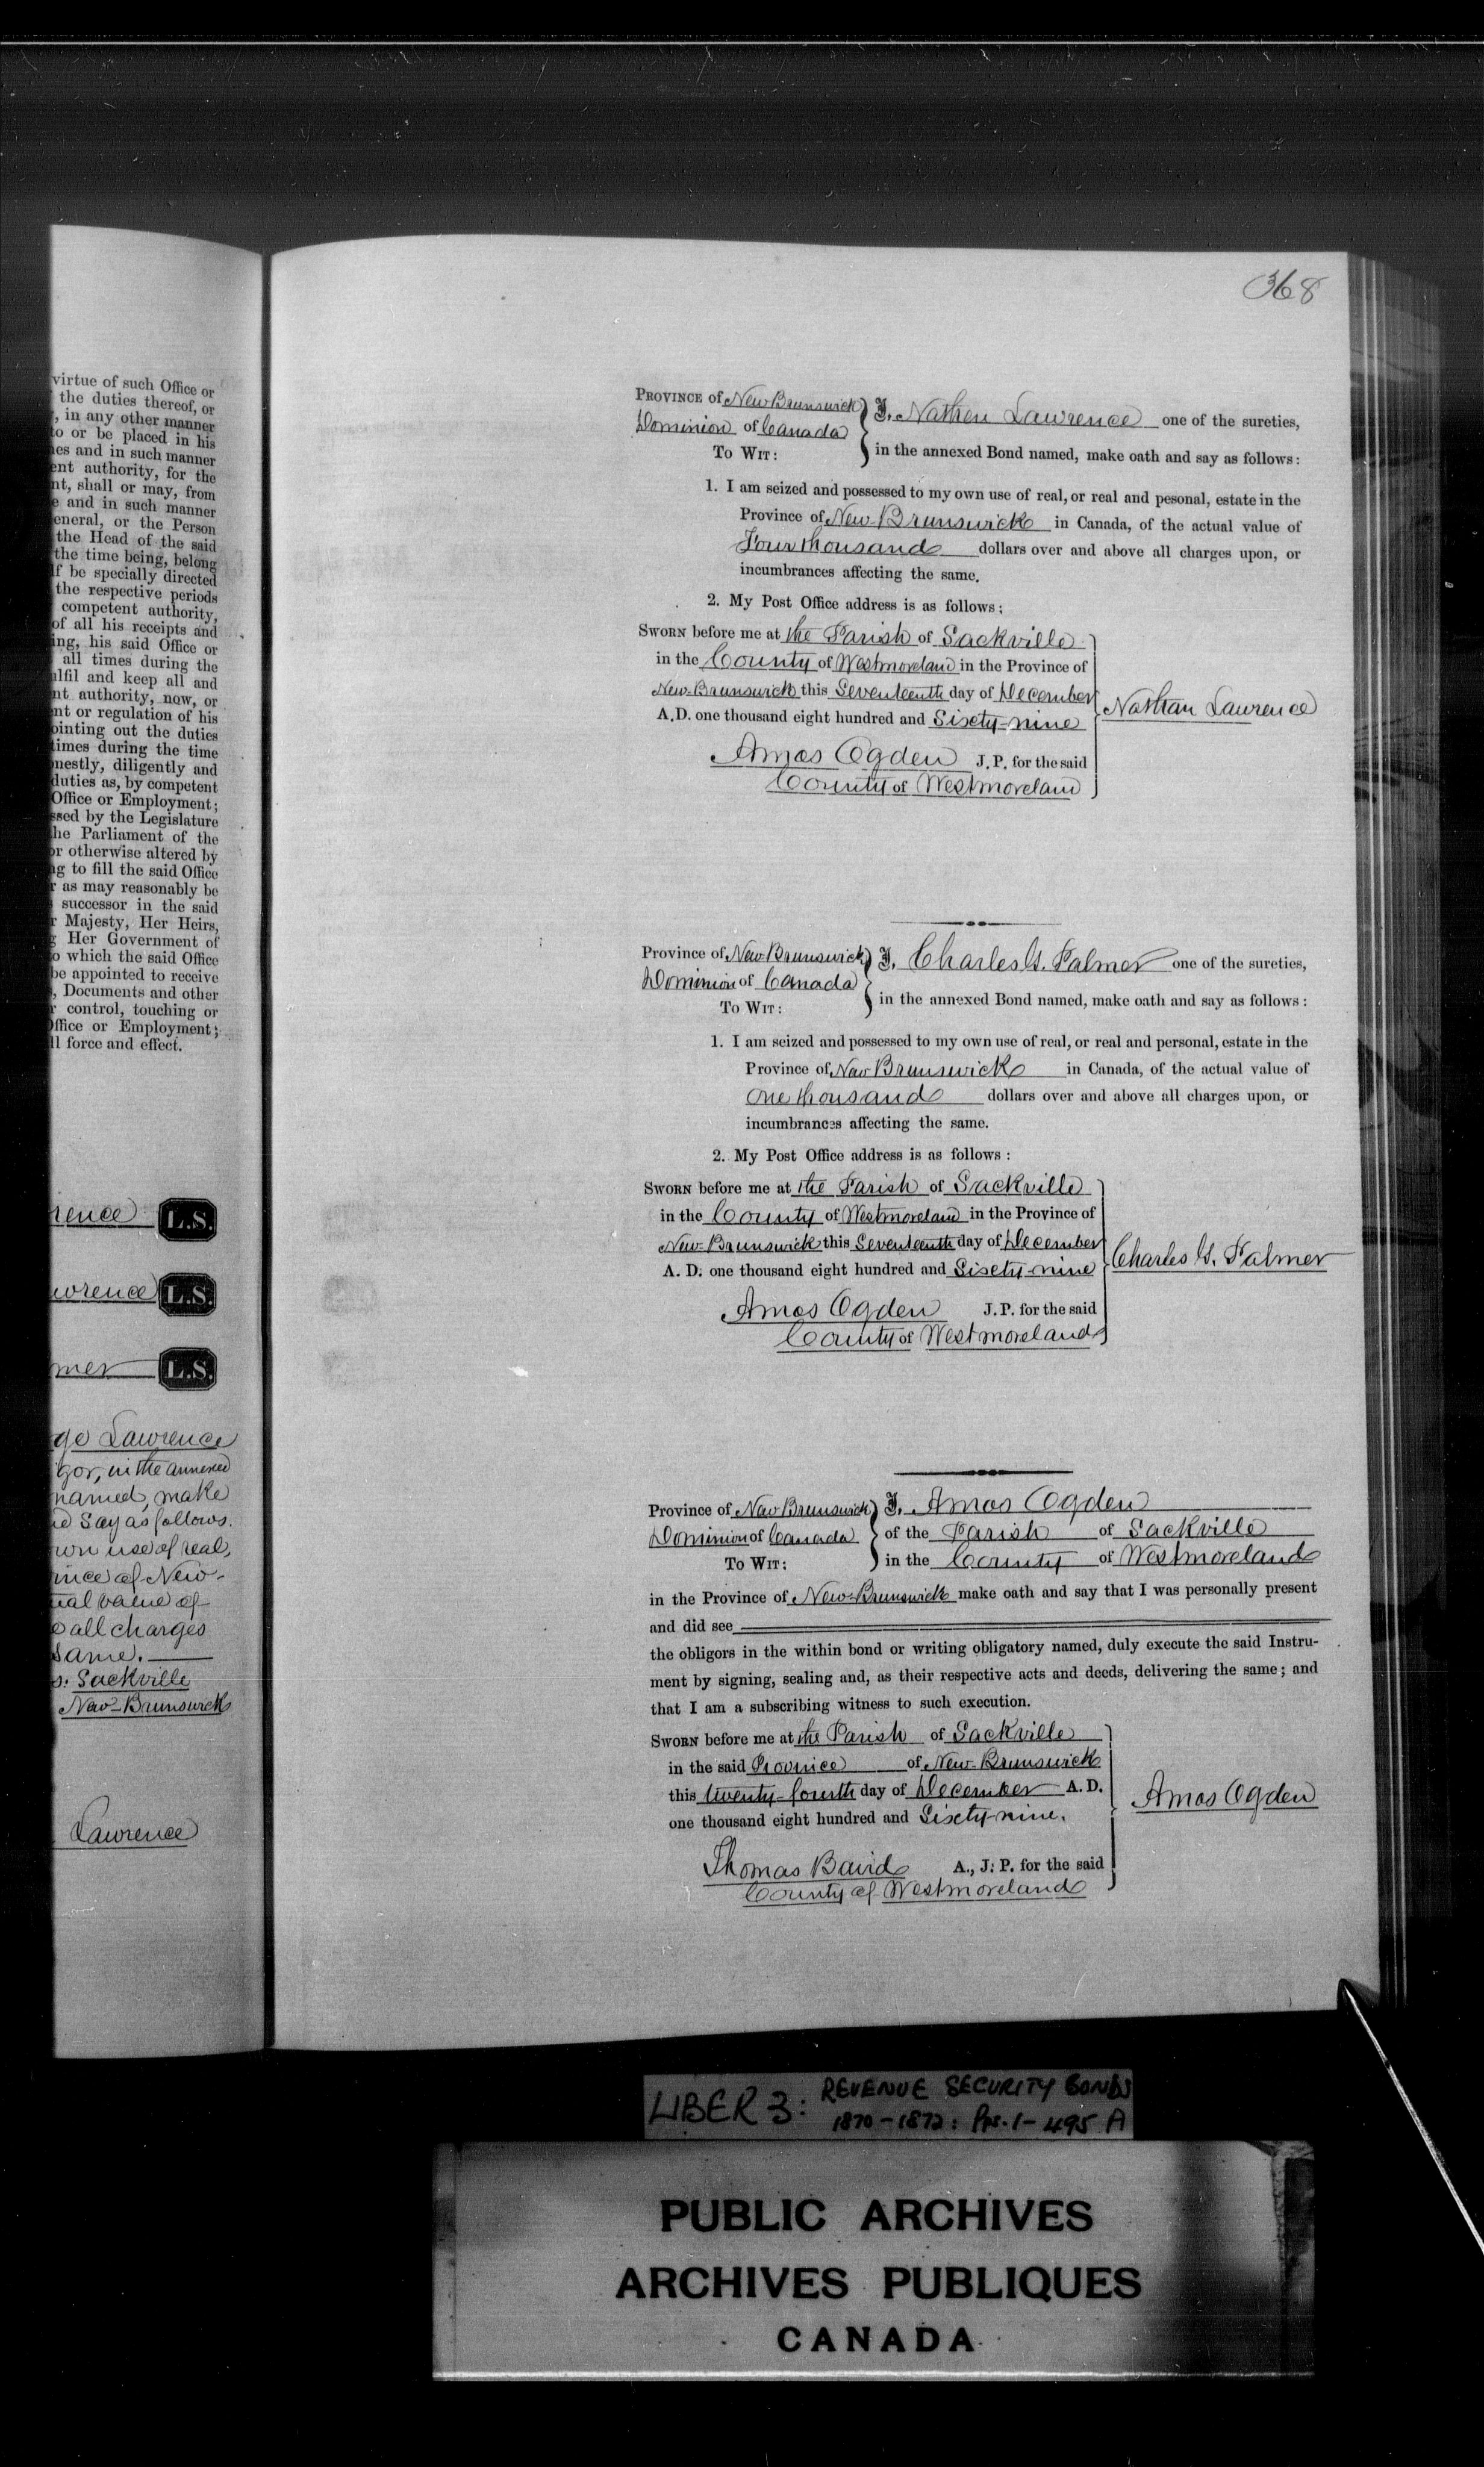 virtue of such Office or
the duties thereof, or
, in any other manner
to or be placed in his
ies and in such manner
ent authority, for the
nt, shall or may, from
e and in such manner
eneral, or the Person
the Head of the said
the time being, belong
lf be specially directed
the respective periods
competent authority,
of all his receipts and
ing, his said Office or
all times during the
ulfil and keep all and
nt authority, now, or
nt or regulation of his
ointing out the duties
times during the time
nestly, diligently and
duties as, by competent
Office or Employment;
ssed by the Legislature
he Parliament of the
or otherwise altered by
ng to fill the said Office
r as may reasonably be
successor in the said
r Majesty, Her Heirs,
g Her Government of
o which the said Office
be appointed to receive
, Documents and other
r control, touching or
Office or Employment;
ll force and effect.
rence L.S.
wrence L.S.
mer L.S.
ge Lawrence
igor, in the annexed
named, make
nd Say as follows.
own use of real,
ince of New-
ual value of
e all charges
same.
s: Sackville
New-Brunswick
Lawrence
368
PROVINCE of New Brunswick
Dominion of Canada
TO WIT:
I, Nathen Lawrence one of the sureties,
in the annexed Bond named, make oath and say as follows:
1. I am seized and possessed to my own use of real, or real and pesonal, estate in the
Province of New-Brunswick in Canada, of the actual value of
Four thousand dollars over and above all charges upon, or
incumbrances affecting the same.
2. My Post Office address is as follows:
SWORN before me at the Parish of Sackville
in the County of Westmoreland in the Province of
New-Brunswick this Seventeenth day of December
A.D. one thousand eight hundred and Sixty-nine
Nathan Lawrence
Amos Ogden J.P. for the said
County of Westmoreland
Province of New Brunswick
Dominion of Canada
TO WIT:
I, Charles G. Palmer one of the sureties,
in the annexed Bond named, make oath and say as follows:
1. I am seized and possessed to my own use of real, or real and personal, estate in the
Province of New Brunswick in Canada, of the actual value of
One thousand dollars over and above all charges upon, or
incumbrances affecting the same.
2. My Post Office address is as follows:
SWORN before me at the Parish of Sackville
in the County of Westmoreland in the Province of
New-Brunswick this Seventeenth day of December
A. D. one thousand eight hundred and Sixty-nine
Charles G. Palmer
Amos Ogden J. P. for the said
County of Westmoreland
Province of New Brunswick
Dominion of Canada
TO WIT:
I, Amos Ogden
of the Parish of Sackville
in the County of Westmoreland
in the Province of New-Brunswick make oath and say that I was personally present
and did see
the obligors in the within bond or writing obligatory named, duly execute the said Instru-
ment by signing, sealing and, as their respective acts and deeds, delivering the same; and
that I am a subscribing witness to such execution.
SWORN before me at the Parish of Sackville
in the said Province of New-Brunswick
this twenty-fourth day of December A. D.
one thousand eight hundred and Sixty-nine.
Amos Ogden
Thomas Baird A., J. P. for the said
County of Westmoreland
LIBER 3: REVENUE SECURITY BONDS
1870-1872: Pps. 1-495 A
PUBLIC ARCHIVES
ARCHIVES PUBLIQUES
CANADA